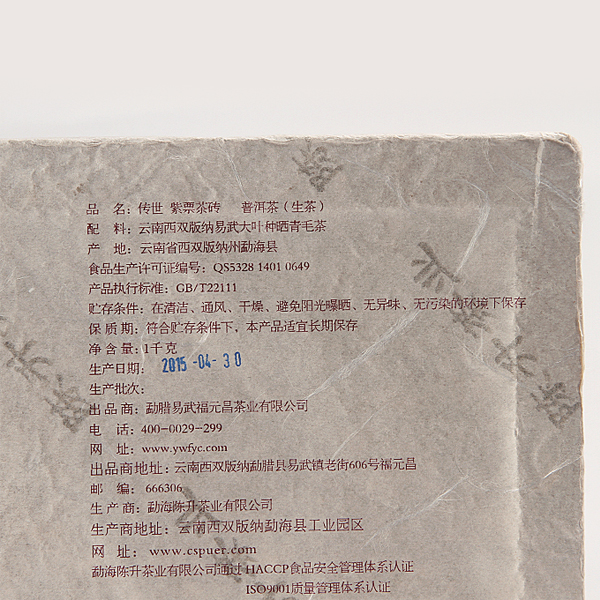 品 名：传世 紫票茶砖 普洱茶（生茶）
配 料：云南西双版纳易武大叶种晒青毛茶
产 地：云南省西双版纳州勐海县
食品生产许可证编号：QS5328 1401 0649
产品执行标准：GB/T22111
贮存条件：在清洁、通风、干燥、避免阳光曝晒、无异味、无污染的环境下保存
保 质 期：符合贮存条件下，本产品适宜长期保存
净 含 量：1千克
生产日期：2015-04-30
生产批次：
出 品 商：勐腊易武福元昌茶业有限公司
电 话：400-0029-299
网 址：www.ywfyc.com
出品商地址：云南西双版纳勐腊县易武镇老街606号福元昌
邮 编：666306
生 产 商：勐海陈升茶业有限公司
生产商地址：云南西双版纳勐海县工业园区
网 址：www.cspuer.com
勐海陈升茶业有限公司通过 HACCP食品安全管理体系认证
ISO9001质量管理体系认证